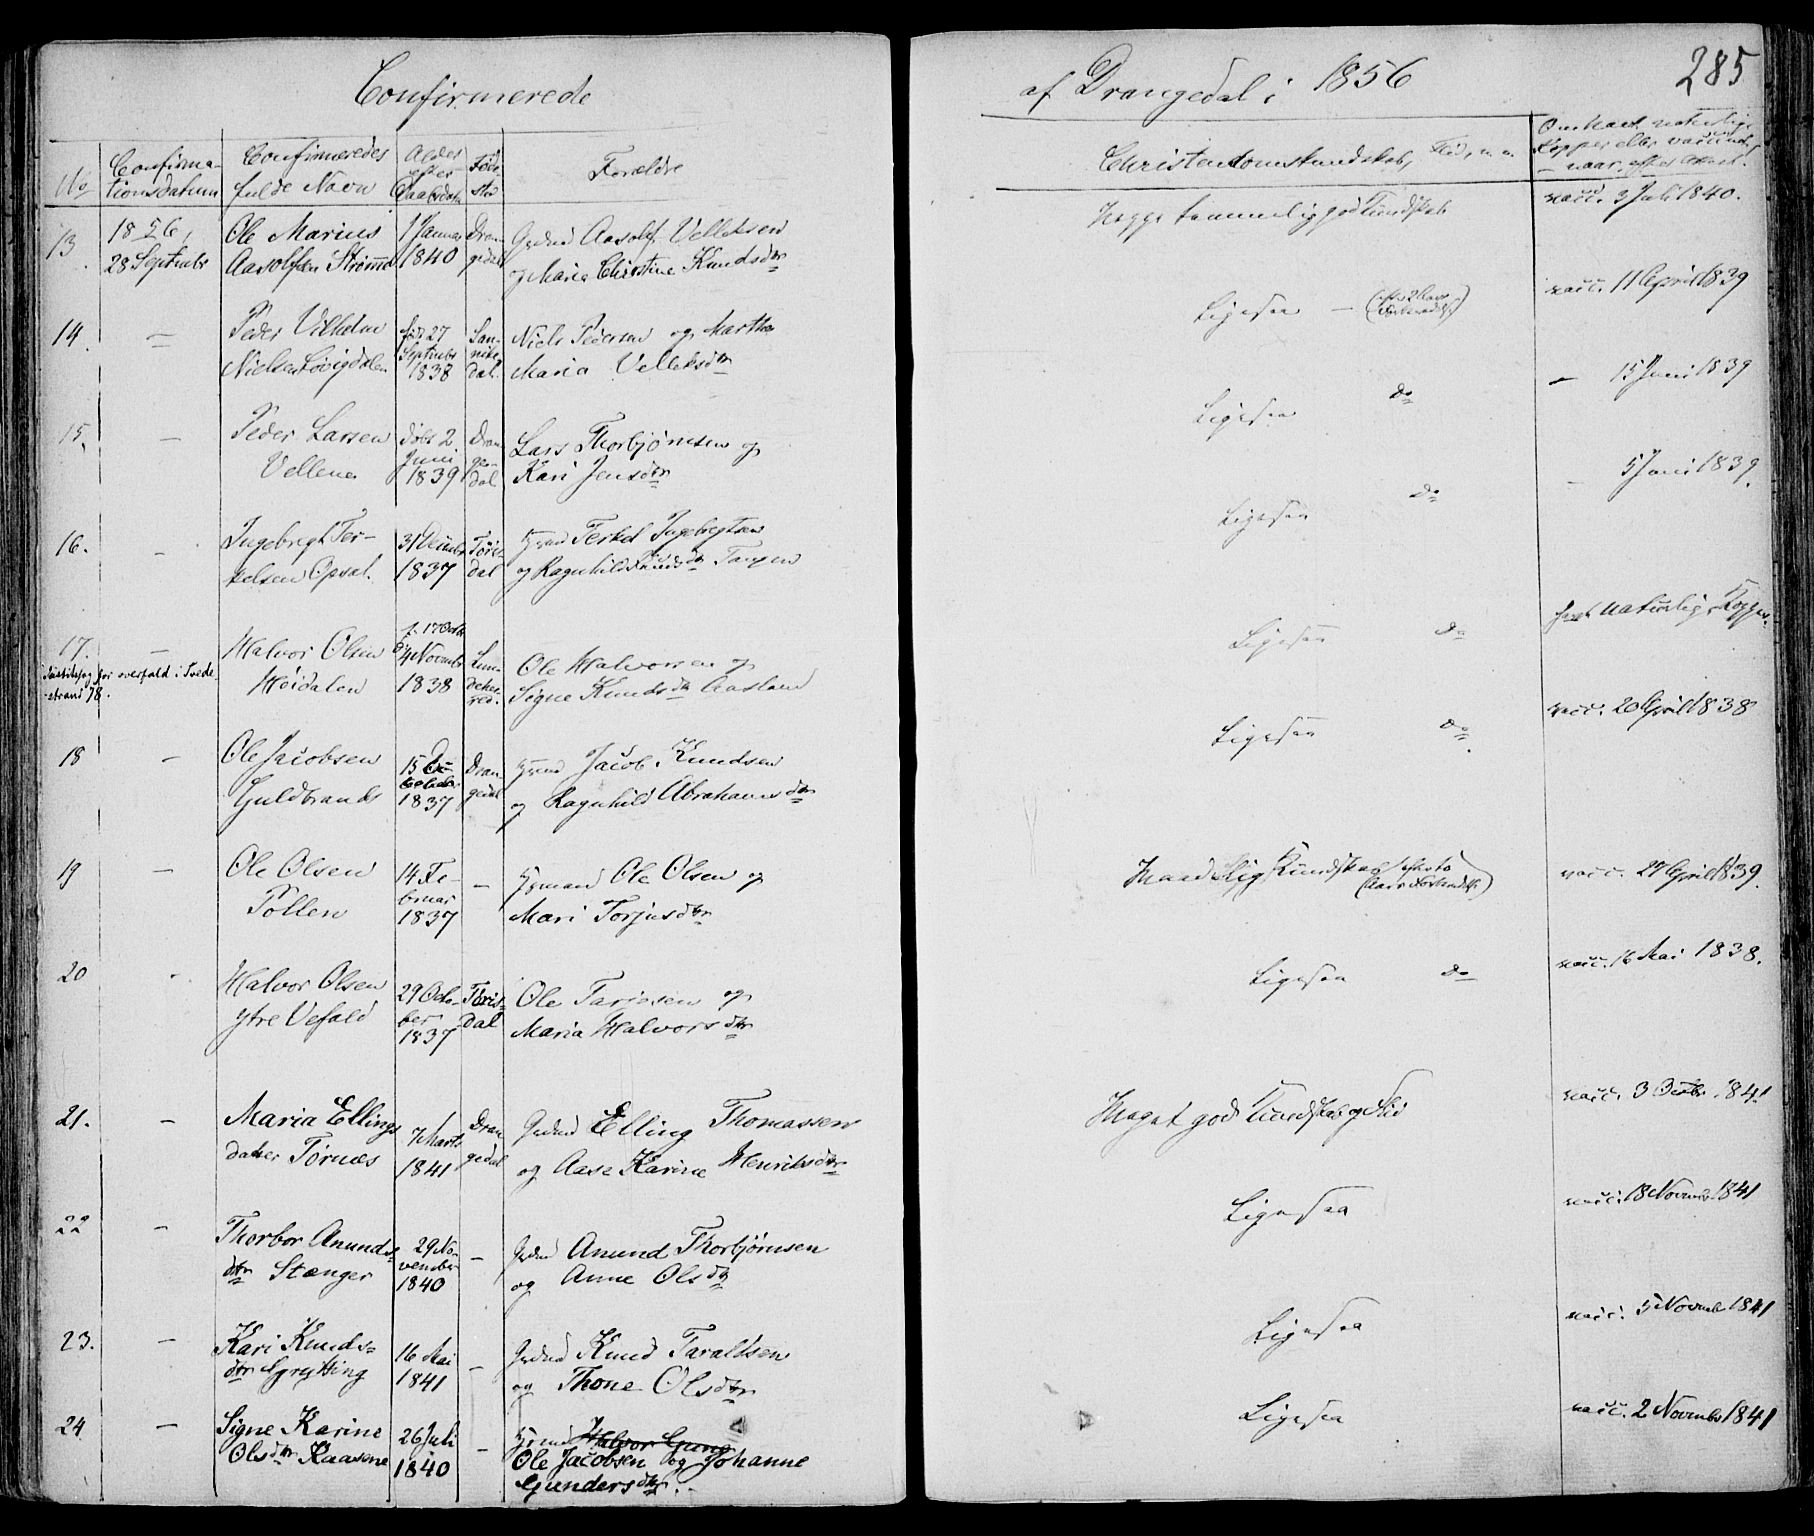 Confirmerede
af Drangedal i 1856
285
No
Confirma-
tionsdatum
Confirmeredes
fulde Navn
Alder
efter
Daabsdatum
Føde-
sted
Forældre
Christendomskundskab, Flid, m.m.
Om havt naturlige
Kopper eller vaccineret,
naar, efter Attest.
13.
1856,
28 September
Ole Marius
Aasolfsen Strømme
1 Januar
1840
Dran-
gedal
Gaardmd Aasolf Velleksen
og Maria Christine Knudsdtr
Meget temmelig god Kundskab
vacc. 3 Juli 1840.
14.
Peder Vilhelm
Nielsen Løvigdalen
født 27
Septmbr
1838
San-
nike-
dal.
Niels Pedersen og Marthe
Maria Velleksdtr
Ligesaa
vacc. 11 April 1839
15.
Peder Larsen
Vellene
døbt 2
Juni
1839
Dran-
ge-
dal
Lars Thorbjørnsen og
Kari Jensdtr
Ligesaa do
15 Juni 1839
16.
Ingebregt Ter-
kelsen Opsal.
31 Decmbr
1837
Tøris-
dal
Terkel Ingebregtsen
og Ragnhild Knudsdtr Tangen
Ligesaa do
5 Juni 1839.
17.
Justitssag for overfald i Tvede-
strand 78.
Halvor Olsen
Heidalen
f. 17 Octb
4 Novembr
1838
Lun-
deher-
red.
Ole Halvorsen og
Signe Knudsdtr Aasland
Ligesaa do
havt naturlige Kopper.
18
Ole Jacobsen
Guldbrands
15 De-
cember
1837
Dran-
gedal
Jacob Knudsen
og Ragnhild Abrahamsdtr
Ligesaa do
vacc. 20 April 1838
19
Ole Olsen
Pollen
14 Fe-
bruar
1837
Ole Olsen og
Mari Torjusdtr
Maadelig Kundskab
vacc. 27 April 1839.
20
Halvor Olsen
ytre Vefald
29 Octo-
ber
1837
Tøris-
dal
Ole Tarjesen og
Maria Halvorsdtr
Ligesaa do
vacc. 16 Mai 1838.
21.
Maria Ellings
datter Tørnes
7 Marts
1841
Dran
gedal
Gaardmd Elling Thomassen
og Aase Karine Henriksdtr
Meget god Kundskab og Flid
vacc. 3 Octbr. 1841
22
Thorbor Anunds-
dtr Stænger
29 No-
vember
1840
Gaardmd Anund Thorbjørnsen
og Anne Olsdtr
Ligesaa
vacc. 18 Novmbr 1841
23.
Kari Knuds-
dtr Grytting
16 Mai
1841
Gaardmd Knud Taraldsen
og Thone Olsdtr
Ligesaa
vacc. 5 Novmbr 1841
24
Signe Karine
Olsdtr Kaasene
26 Juli
1840
Halvor Gun
Ole Jacobsen og Johanne
Gundersdtr.
Ligesaa
vacc. 2 Novmbr 1841